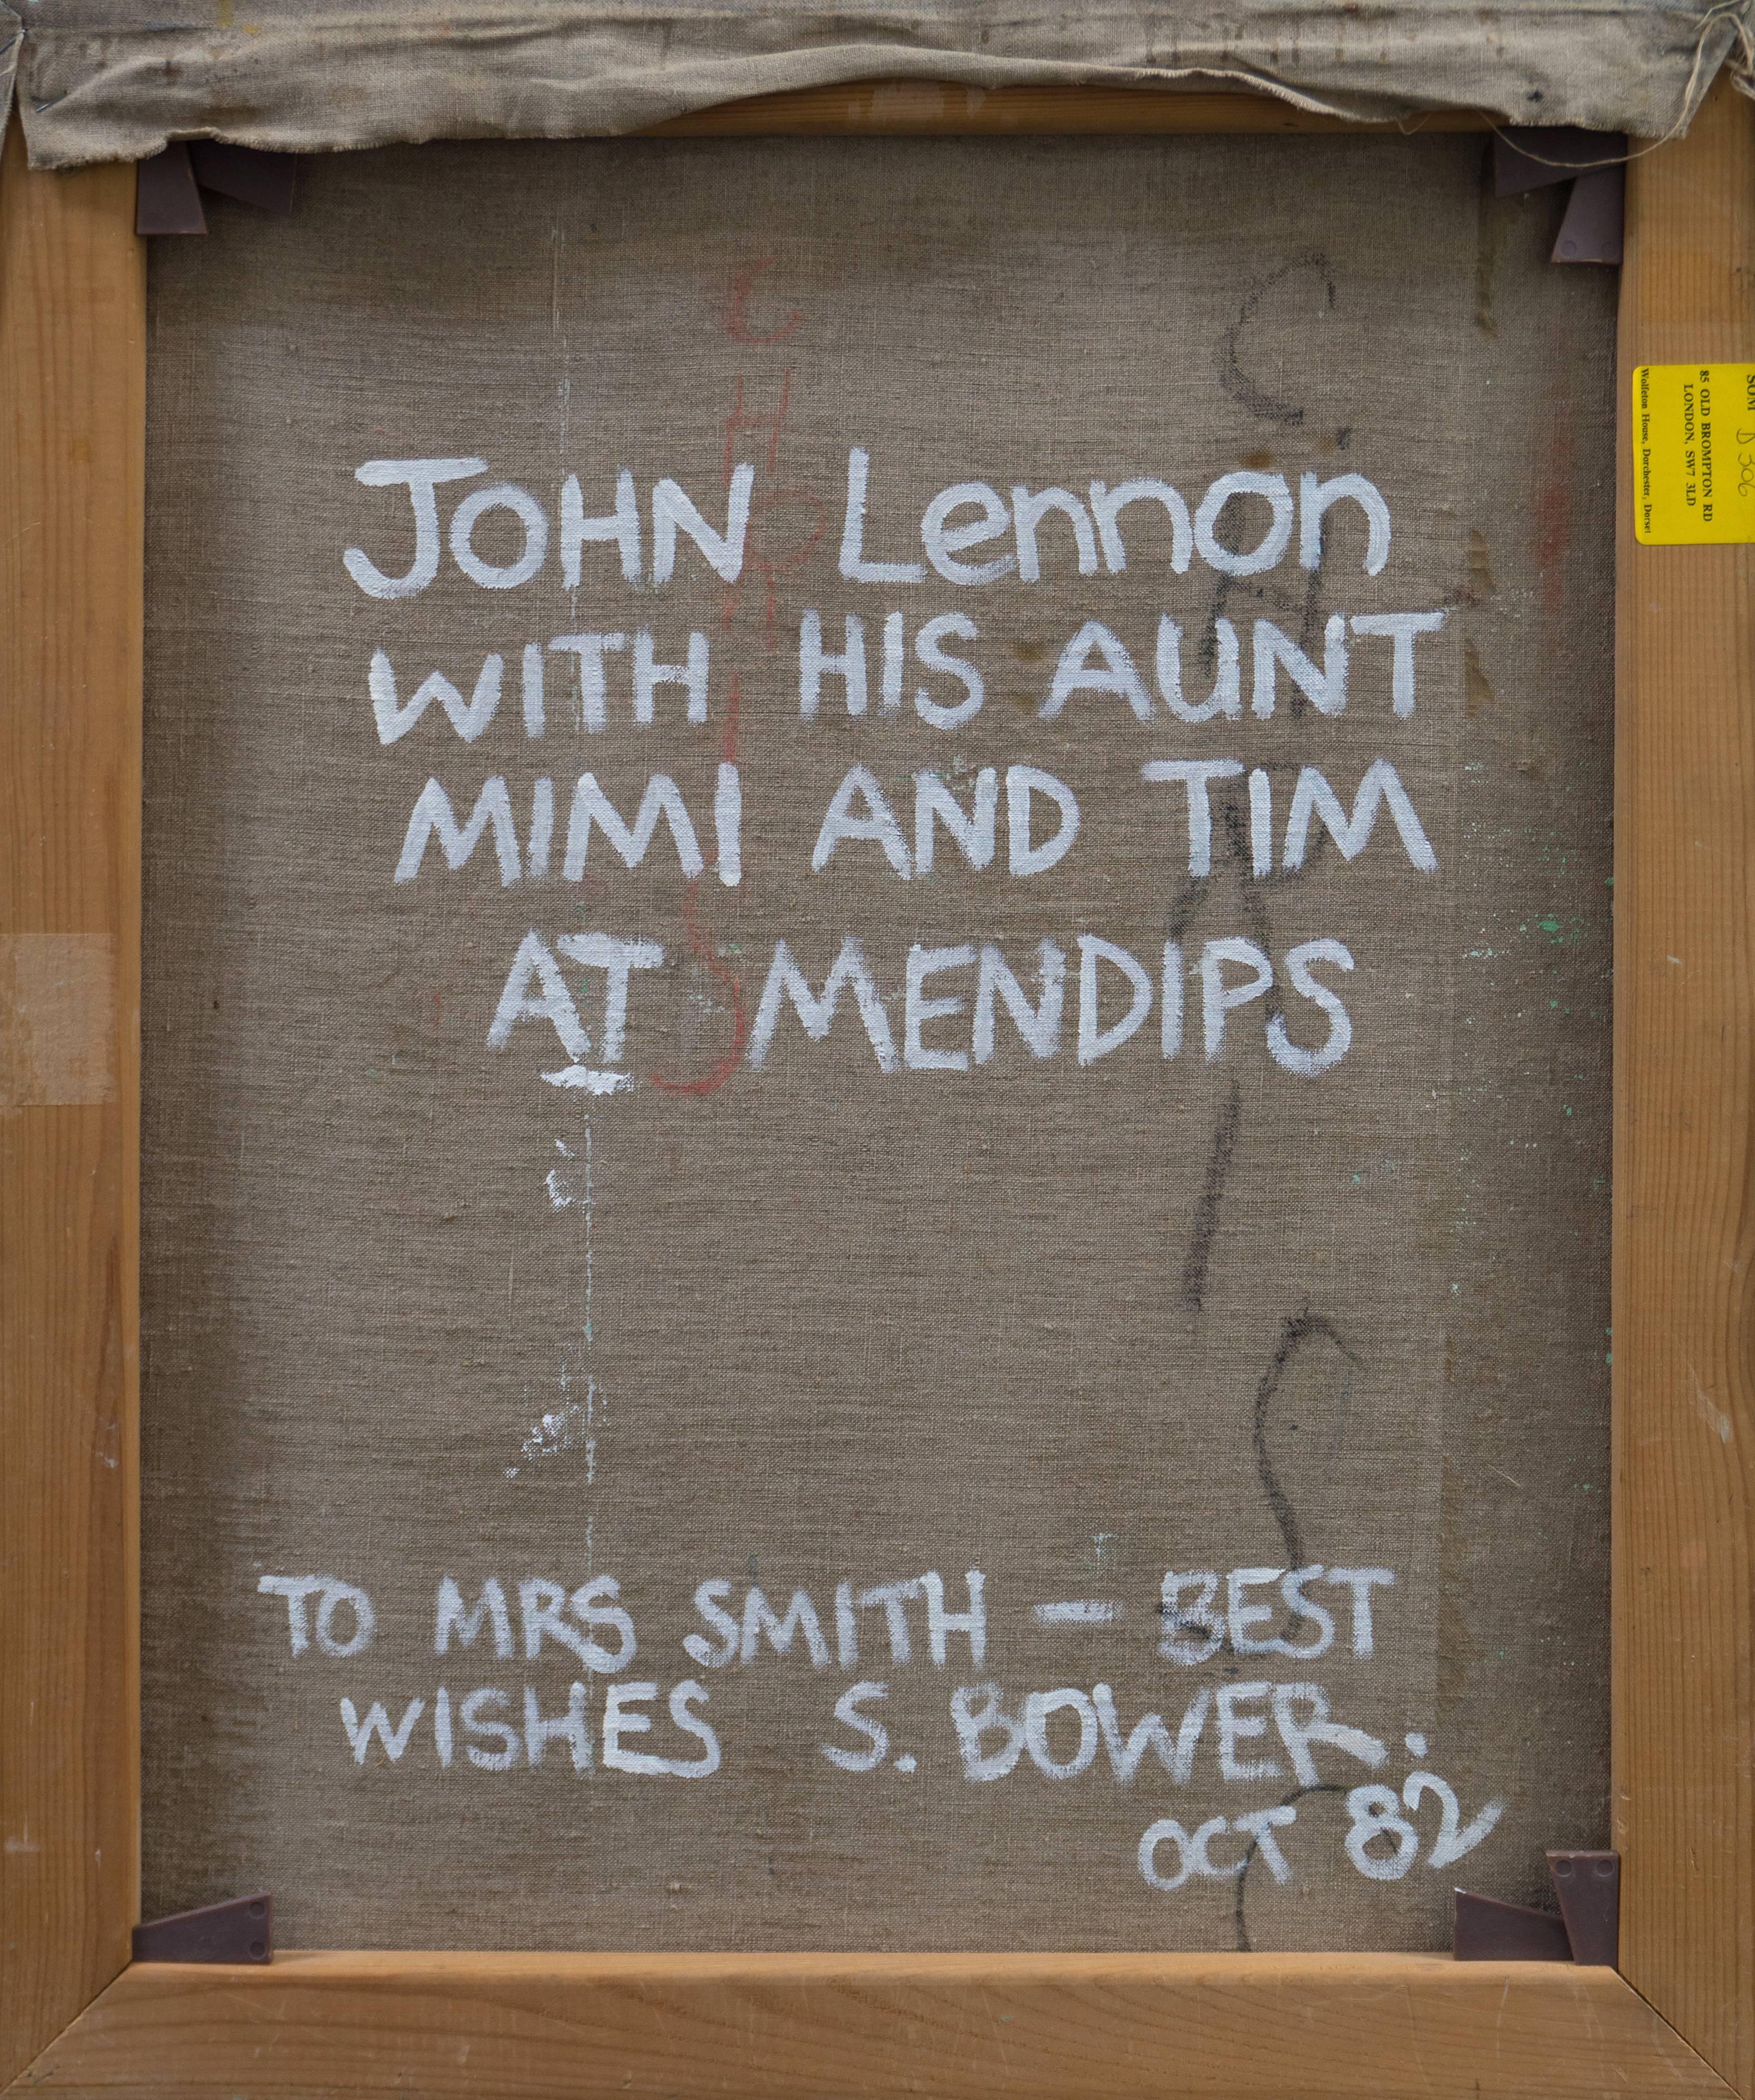 JOHN Lennon
WITH HIS AUNT
MIMI AND TIM
AT MENDIPS
TO MRS SMITH — BEST
WISHES S. BOWER.
OCT 82
D306
85 OLD BROMPTON RD
LONDON, SW7 3LD
Wolfeton House, Dorchester, Dorset
CHRIS
CHRIS